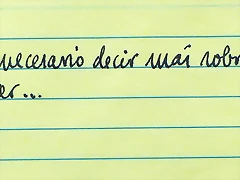 necesario decir más sobr
er...